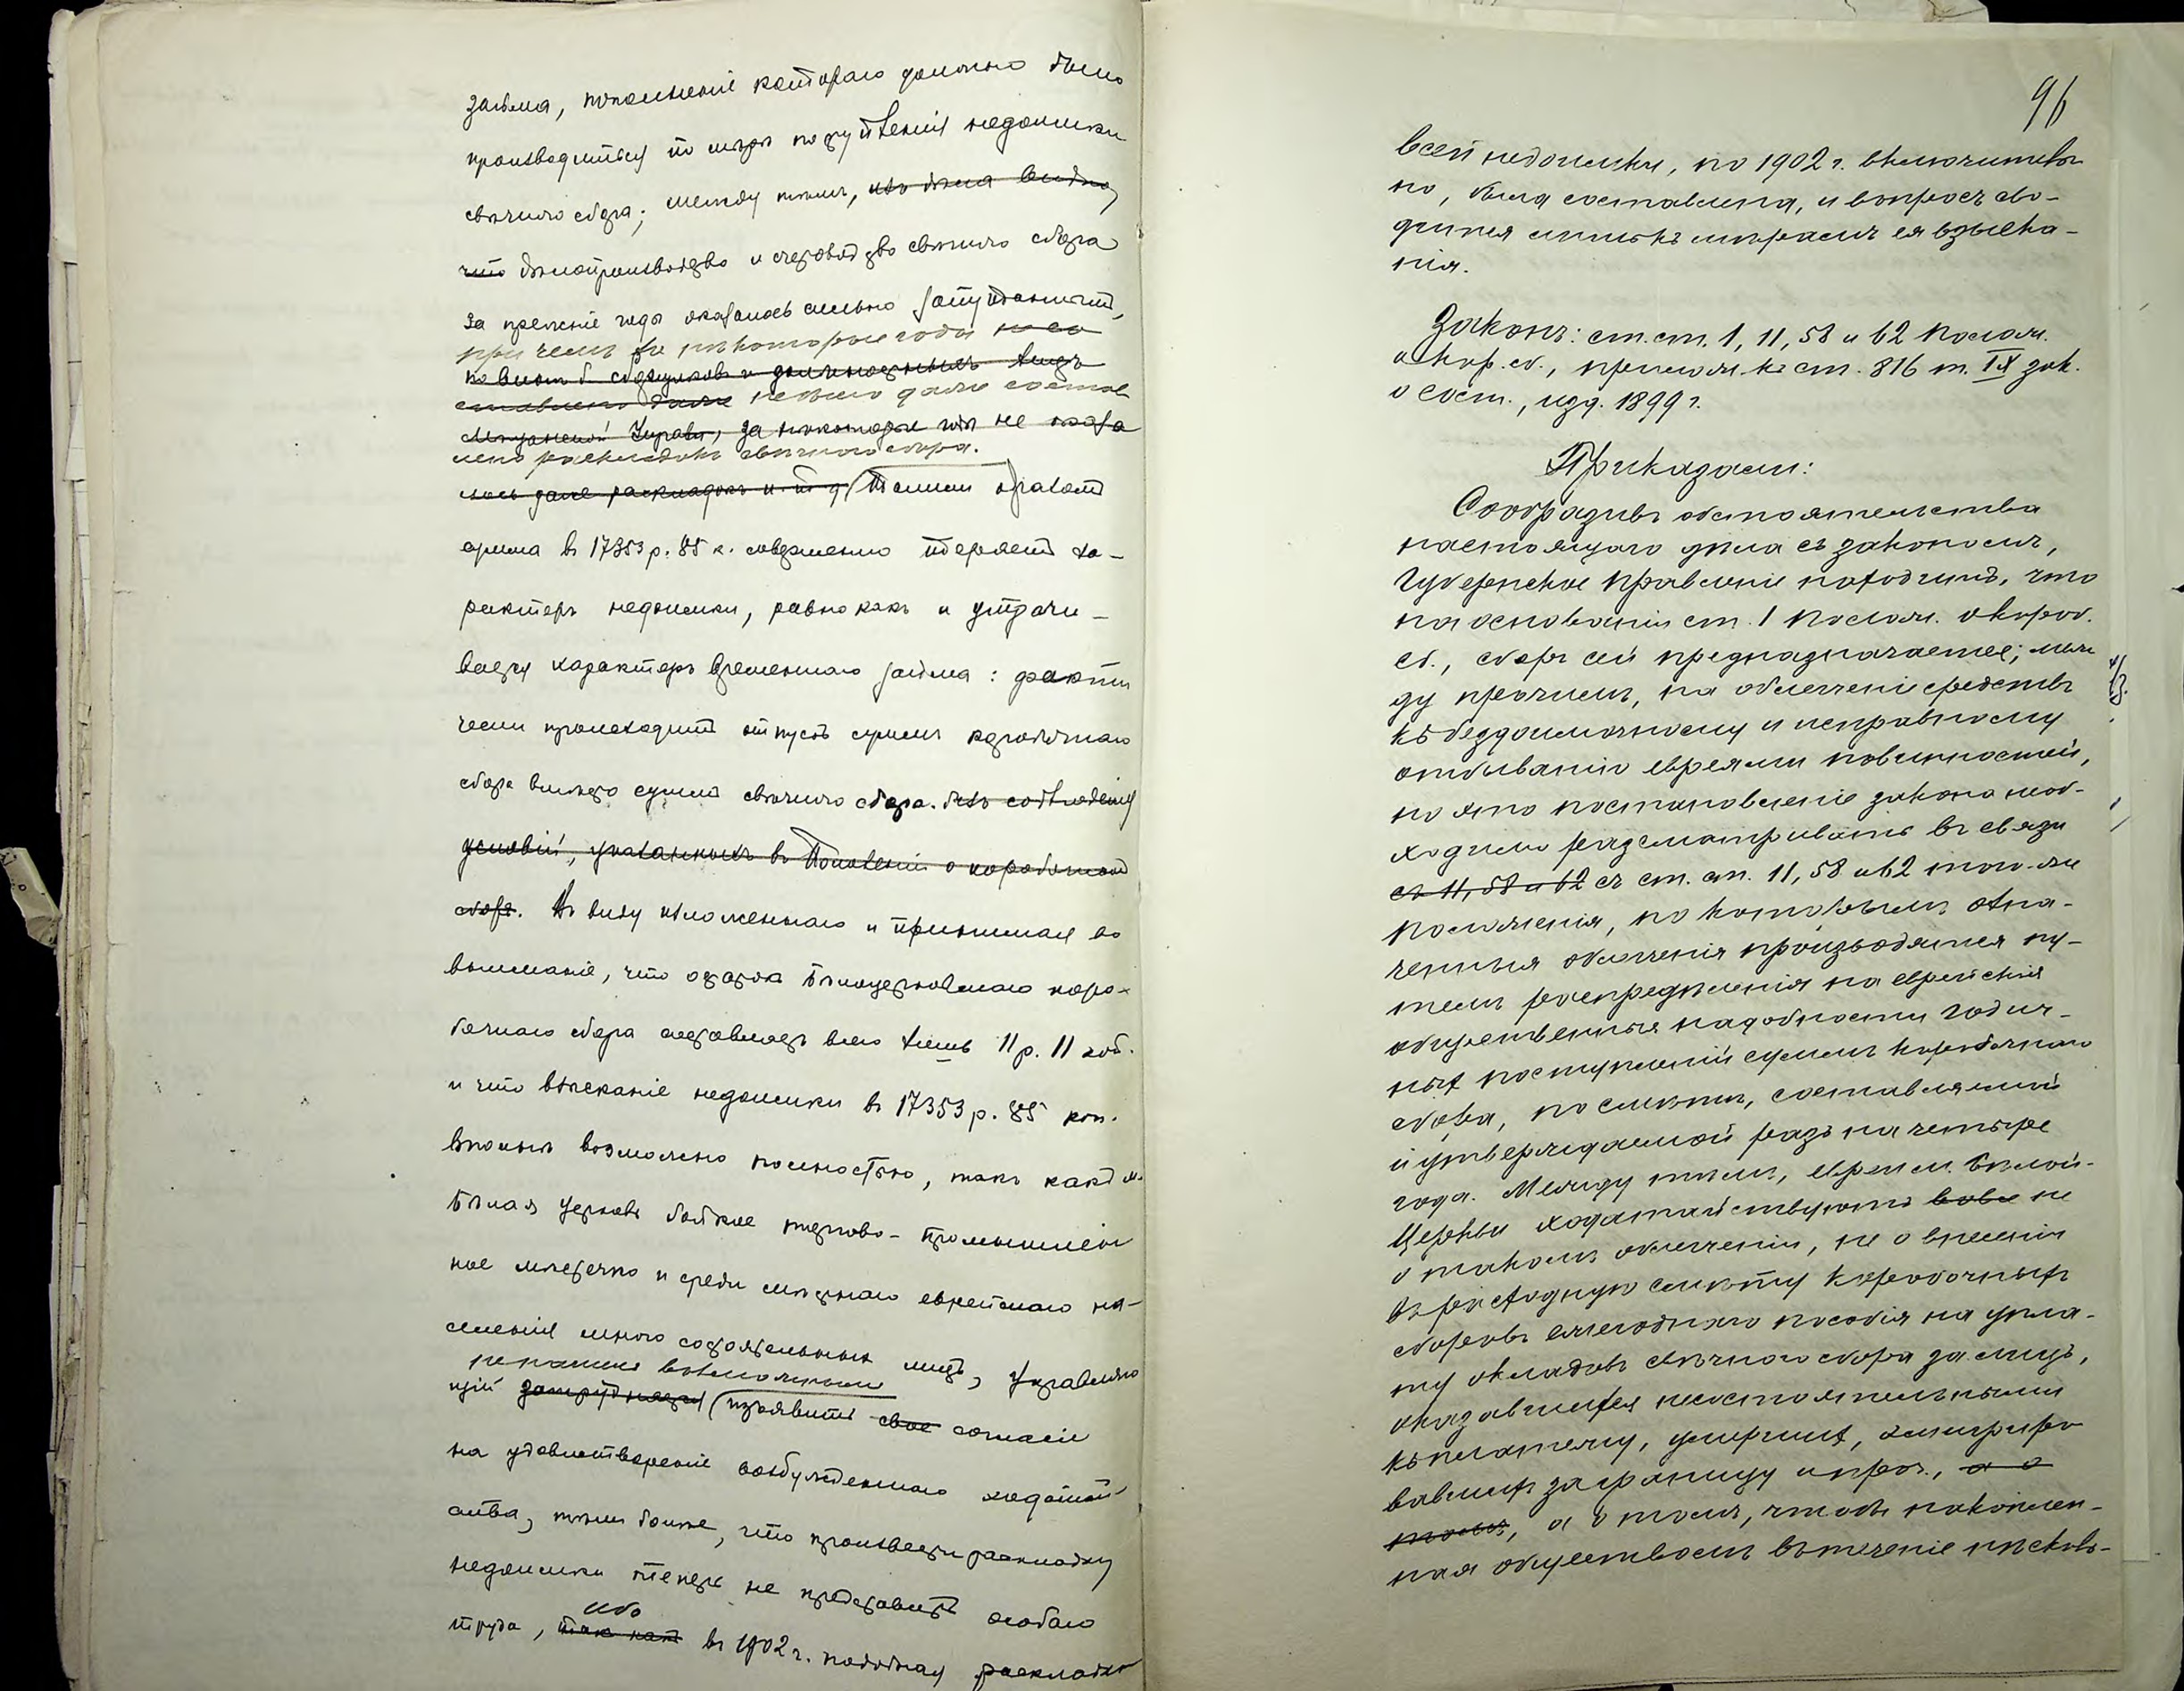 займа, пополненіе котораго должно было
производиться по мѣрѣ поступленія недоимки
свѣчного сбора; между тѣмъ, какъ было видно,
что дѣлопроизводство и счетоводство свѣчного сбора
за прежніе годы оказалось сильно запутаннымъ,
при чемъ за нѣкоторые годы не со
по винѣ б. сборщиковъ и должностныхъ лицъ
ставлено даже не было даже состав
Мѣщанской Управы, за нѣкоторые годы не оказа
лено раскладокъ свѣчного сбора.
лось даже раскладокъ и т. д. Такимъ образомъ
сумма въ 17353 р. 85 к. совершенно теряетъ ха-
рактеръ недоимки, равно какъ и утрачи-
ваетъ характеръ временнаго займа: факти
чески происходитъ отпускъ суммъ коробочнаго
сбора вмѣсто суммъ свѣчного сбора. безъ соблюденія
условій, указанныхъ въ Положеніи о коробочномъ
сборѣ. Въ виду изложеннаго и принимая во
вниманіе, что остатокъ Бѣлоцерковскаго коро-
бочнаго сбора составляетъ всего лишь 11 р. 11 коп.
и что взысканіе недоимки въ 17353 р. 85 коп.
вполнѣ возможно полностью, такъ какъ м.
Бѣлая Церковь бойкое торгово-промышлен
ное мѣстечко и среди мѣстнаго еврейскаго на-
селенія много состоятельныхъ лицъ, Управляю
не нашелъ возможнымъ
щій затрудняется изъявить свое согласіе
на удовлетвореніе возбужденнаго ходатай
ства, тѣмъ болѣе, что произвести раскладку
недоимки теперь не представитъ особаго
ибо
труда, такъ какъ въ 1902 г. подобная раскладка
96
всей недоимки, по 1902 г. включитель
но, была составлена, и вопросъ сво-
дится лишь къ мѣрамъ ея взыска-
нія.
Законъ: ст. ст. 1, 11, 58 и 62 Полож.
о кор. сб., прилож. къ ст. 816 т. IX зак.
о сост., изд. 1899 г.
Приказали:
Сообразивъ обстоятельства
настоящаго дѣла съ закономъ,
Губернское Правленіе находитъ, что
на основаніи ст. 1 Полож. о короб.
сб., сборъ сей предназначается, меж
ду прочимъ, на облегченіе средствъ
къ бездоимочному и исправному
отбыванію евреями повинностей,
но это постановленіе закона необ-
ходимо разсматривать въ связи
съ 11, 58 и 62 съ ст. ст. 11, 58 и 62 того-же
Положенія, по которымъ озна-
ченныя облегченія производятся пу-
темъ распредѣленія на еврейскія
общественныя надобности годич-
ныхъ поступленій суммъ коробочнаго
сбора, по смѣтѣ, составляемой
и утверждаемой разъ на четыре
года. Между тѣмъ, евреи м. Бѣлой-
Церкви ходатайствуютъ вовсе не
о такомъ облегченіи, не о внесеніи
въ расходную смѣту коробочныхъ
сборовъ ежегоднаго пособія на упла-
ту окладовъ свѣчного сбора за лицъ,
оказавшихся несостоятельными
къ платежу, умершихъ, эмигриро
вавшихъ за границу и проч., а о
томъ, а о томъ, чтобы накоплен-
ная обществомъ въ теченіе нѣсколь-